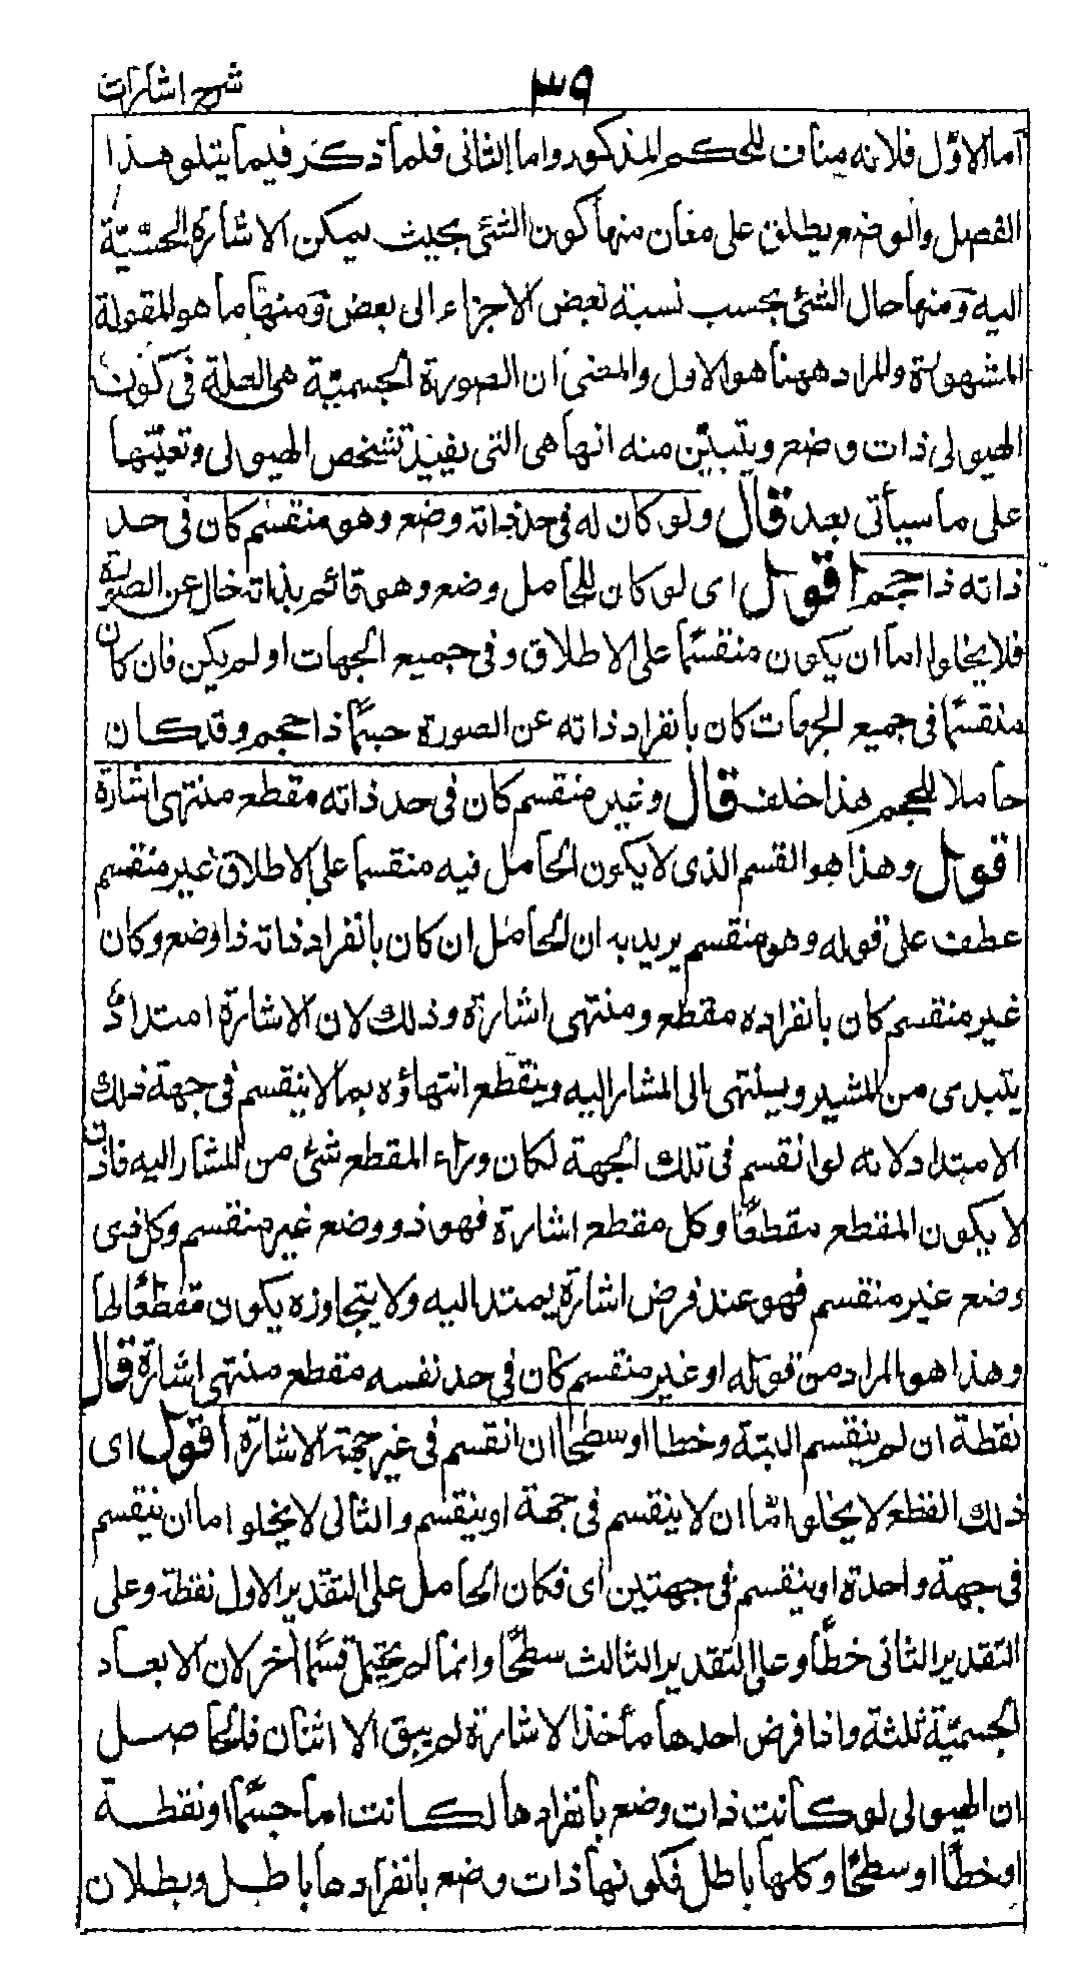 ٣٩
شرح اشارات
اما الاوّل فلانه مناف للحكم المذكور واما الثانى فلما تذكر فيما يتلو هذا
الفصل والوضع يطلق على معان منها كون الشئ بحيث يمكن الاشارة الحسّيّة
اليه ومنها حال الشئ بحسب نسبة بعض الاجزاء الى بعض ومنها ما هو المقولة
المشهورة والمراد ههنا هو الاول والمعنى ان الصورة الجسميّة هى العلة فى كون
الهيولى ذات وضع ويتبيّن منه انها هى التى تفيد تشخص الهيولى وتعيّنها
على ما سيأتى بعد قال ولو كان له فى حد ذاته وضع وهو منقسم كان فى حد
ذاته ذا حجم اقول اى لو كان للحامل وضع وهو قائم بذاته خال عن الصورة
فلا يخلوا اما ان يكون منقسمًا على الاطلاق وفى جميع الجهات او لم يكن فان كان
منقسمًا فى جميع الجهات كان بانفراد ذاته عن الصورة جسمًا ذا حجم وقد كان
حاملا للحجم هذا خلف قال وغير منقسم كان فى حد ذاته مقطع منتهى اشارة
اقول وهذا هو القسم الذى لا يكون الحامل فيه منقسما على الاطلاق غير منقسم
عطف على قوله وهو منقسم يريد به ان الحامل ان كان بانفراد ذاته ذا وضع وكان
غير منقسم كان بانفراده مقطع ومنتهى اشارة وذلك لان الاشارة امتدادٌ
يتبدى من المشير وينتهى الى المشار اليه وينقطع انتهاؤه بما لا ينقسم فى جهة ذلك
الامتداد لانه لو انقسم فى تلك الجهة لكان وراء المقطع شئ من المشار اليه فاذن
لا يكون المقطع مقطعًا وكل مقطع اشارة فهو ذو وضع غير منقسم وكل ذى
وضع غير منقسم فهو عند فرض اشارة يمتد اليه ولا يتجاوزه يكون مقطعًا لها
وهذا هو المراد من قوله او غير منقسم كان فى حد نفسه مقطع منتهى اشارة قال
نقطة ان لم ينقسم البتة وخطا او سطحا ان انقسم فى غير جهة الاشارة اقول اى
ذلك القطع لا يخلوا امّا ان لا ينقسم فى جهة او ينقسم والثانى لا يخلو اما ان ينقسم
فى جهة واحدة او ينقسم فى جهتين اى فكان الحامل على التقدير الاول نقطة وعلى
التقدير الثانى خطًّا وعلى التقدير الثالث سطحًا وانما لم يحتمل قسمًا اخر لان الابعاد
الجسميّة ثلثة واذا فرض احدها مأخذ الاشارة لم يبق الا اثنان فالحاصل
ان الهيولى لو كانت ذات وضع بانفرادها لكانت اما جسمًا او نقطة
او خطًّا او سطحًا وكلها باطل فكونها ذات وضع بانفرادها باطل وبطلان